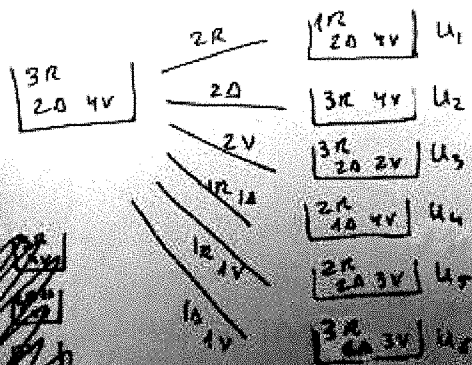 3R
2Δ 4V
2R
2Δ
2V
1R 1Δ
1R 1V
1Δ 1V
1R
2Δ 4V U1
3R 4V U2
3R
2Δ 2V U3
2R
1Δ 4V U4
2R
2Δ 3V
3R
3V